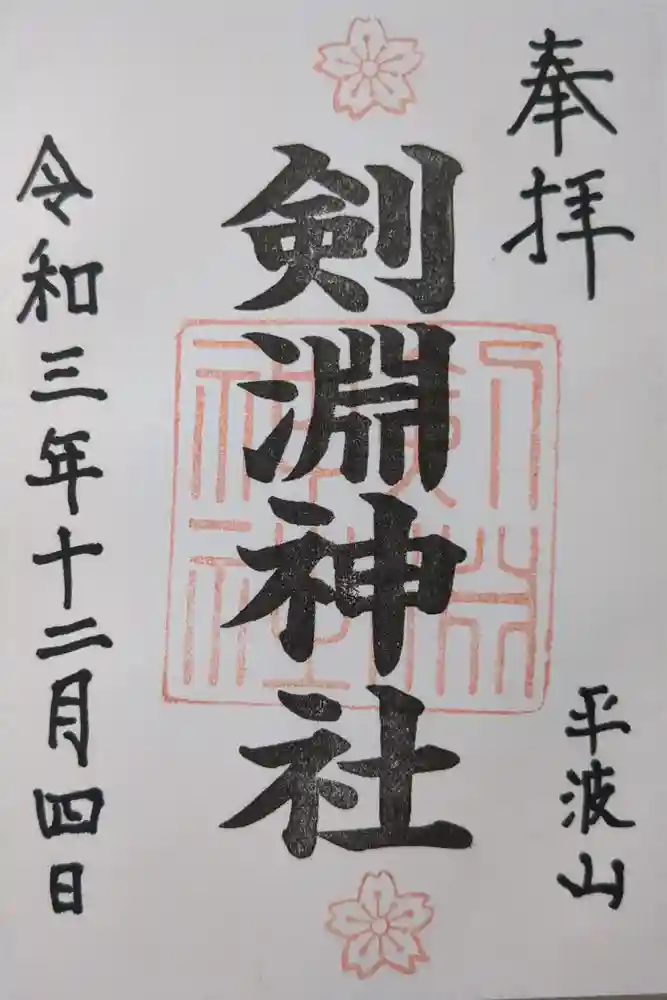 奉拝
平波山
剣淵神社
令和三年十二月四日